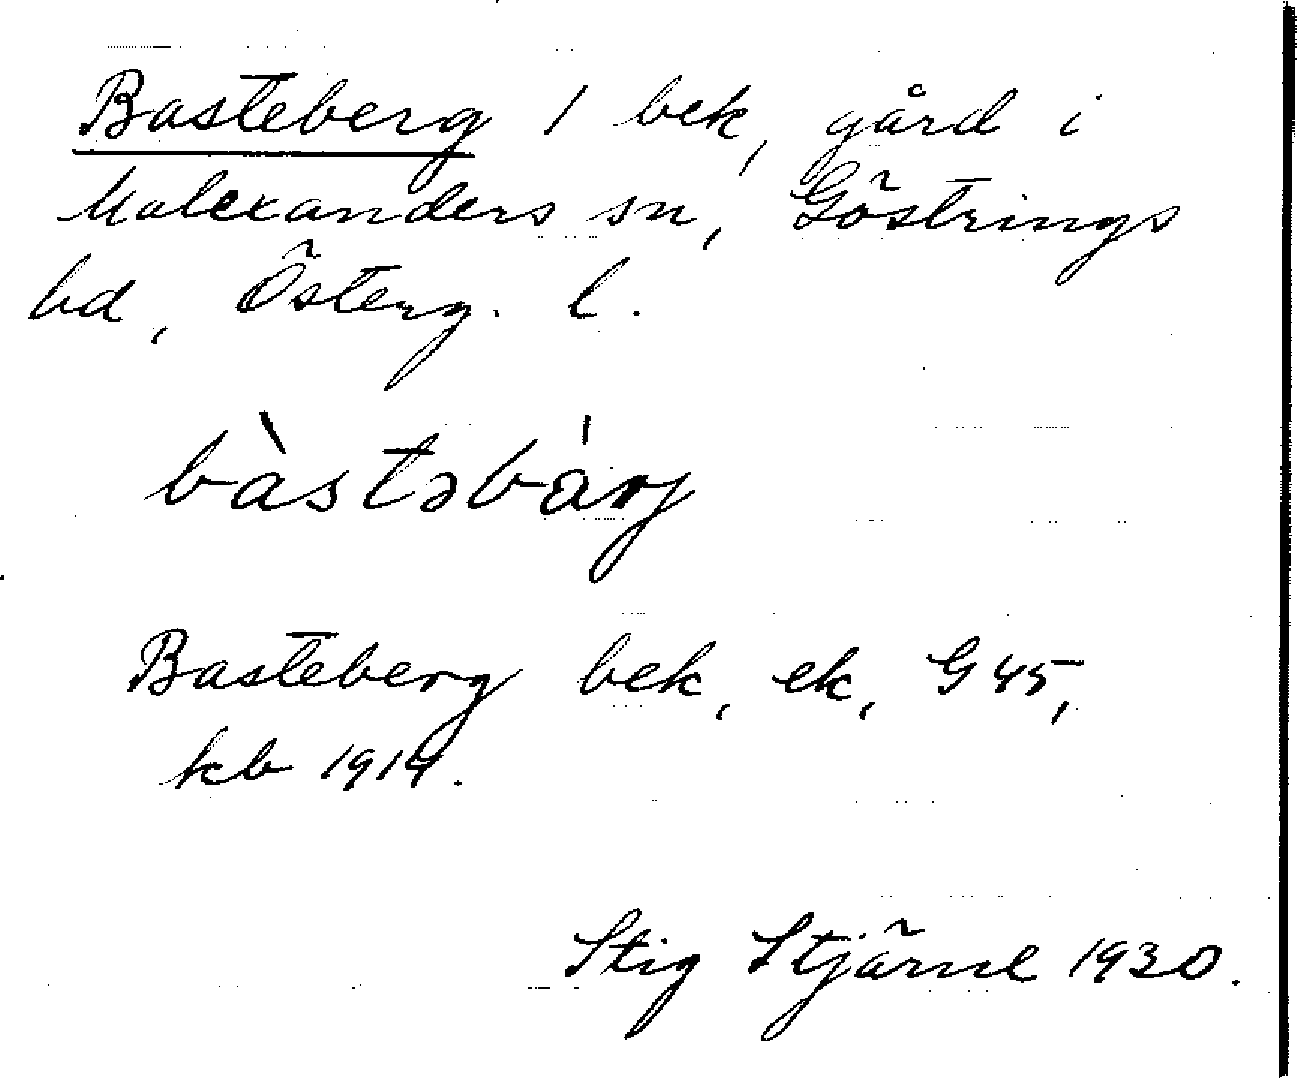 Basteberg 1 bek, gård i
Malexanders sn, Göstrings
hd, Österg. l.
bàstəbàrj
Basteberg bek, ek, G 45,
kb 1914.
Stig Stjärne 1930.